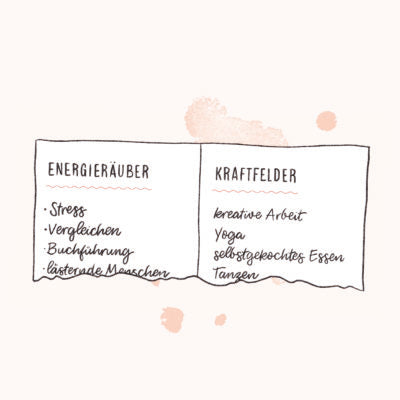 ENERGIERÄUBER
· Stress
· Vergleichen
· Buchführung
· lästernde Menschen
KRAFTFELDER
kreative Arbeit
Yoga
selbstgekochtes Essen
Tanzen